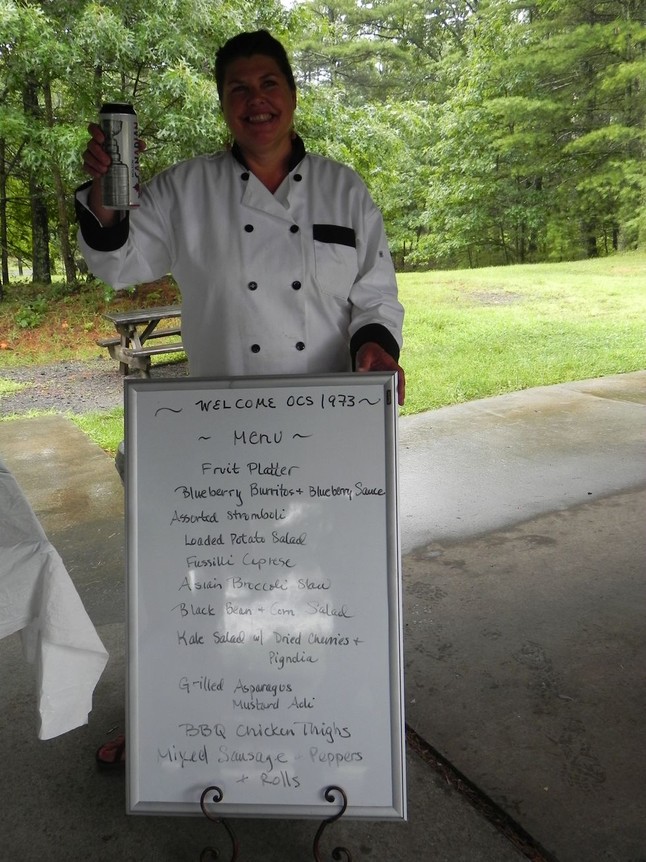 ~ WELCOME OCS 1973 ~
~ Menu ~
Fruit Platter
Blueberry Burritos + Blueberry Sauce
Assorted Stromboli
Loaded Potato Salad
Fussilli Caprese
Asian Broccoli Slaw
Black Bean + Corn Salad
Kale Salad w/ Dried Cherries +
Pignolia
Grilled Asparagus
Mustard Aoli
BBQ Chicken Thighs
Mixed Sausage - Peppers
+ Rolls
CANADIAN